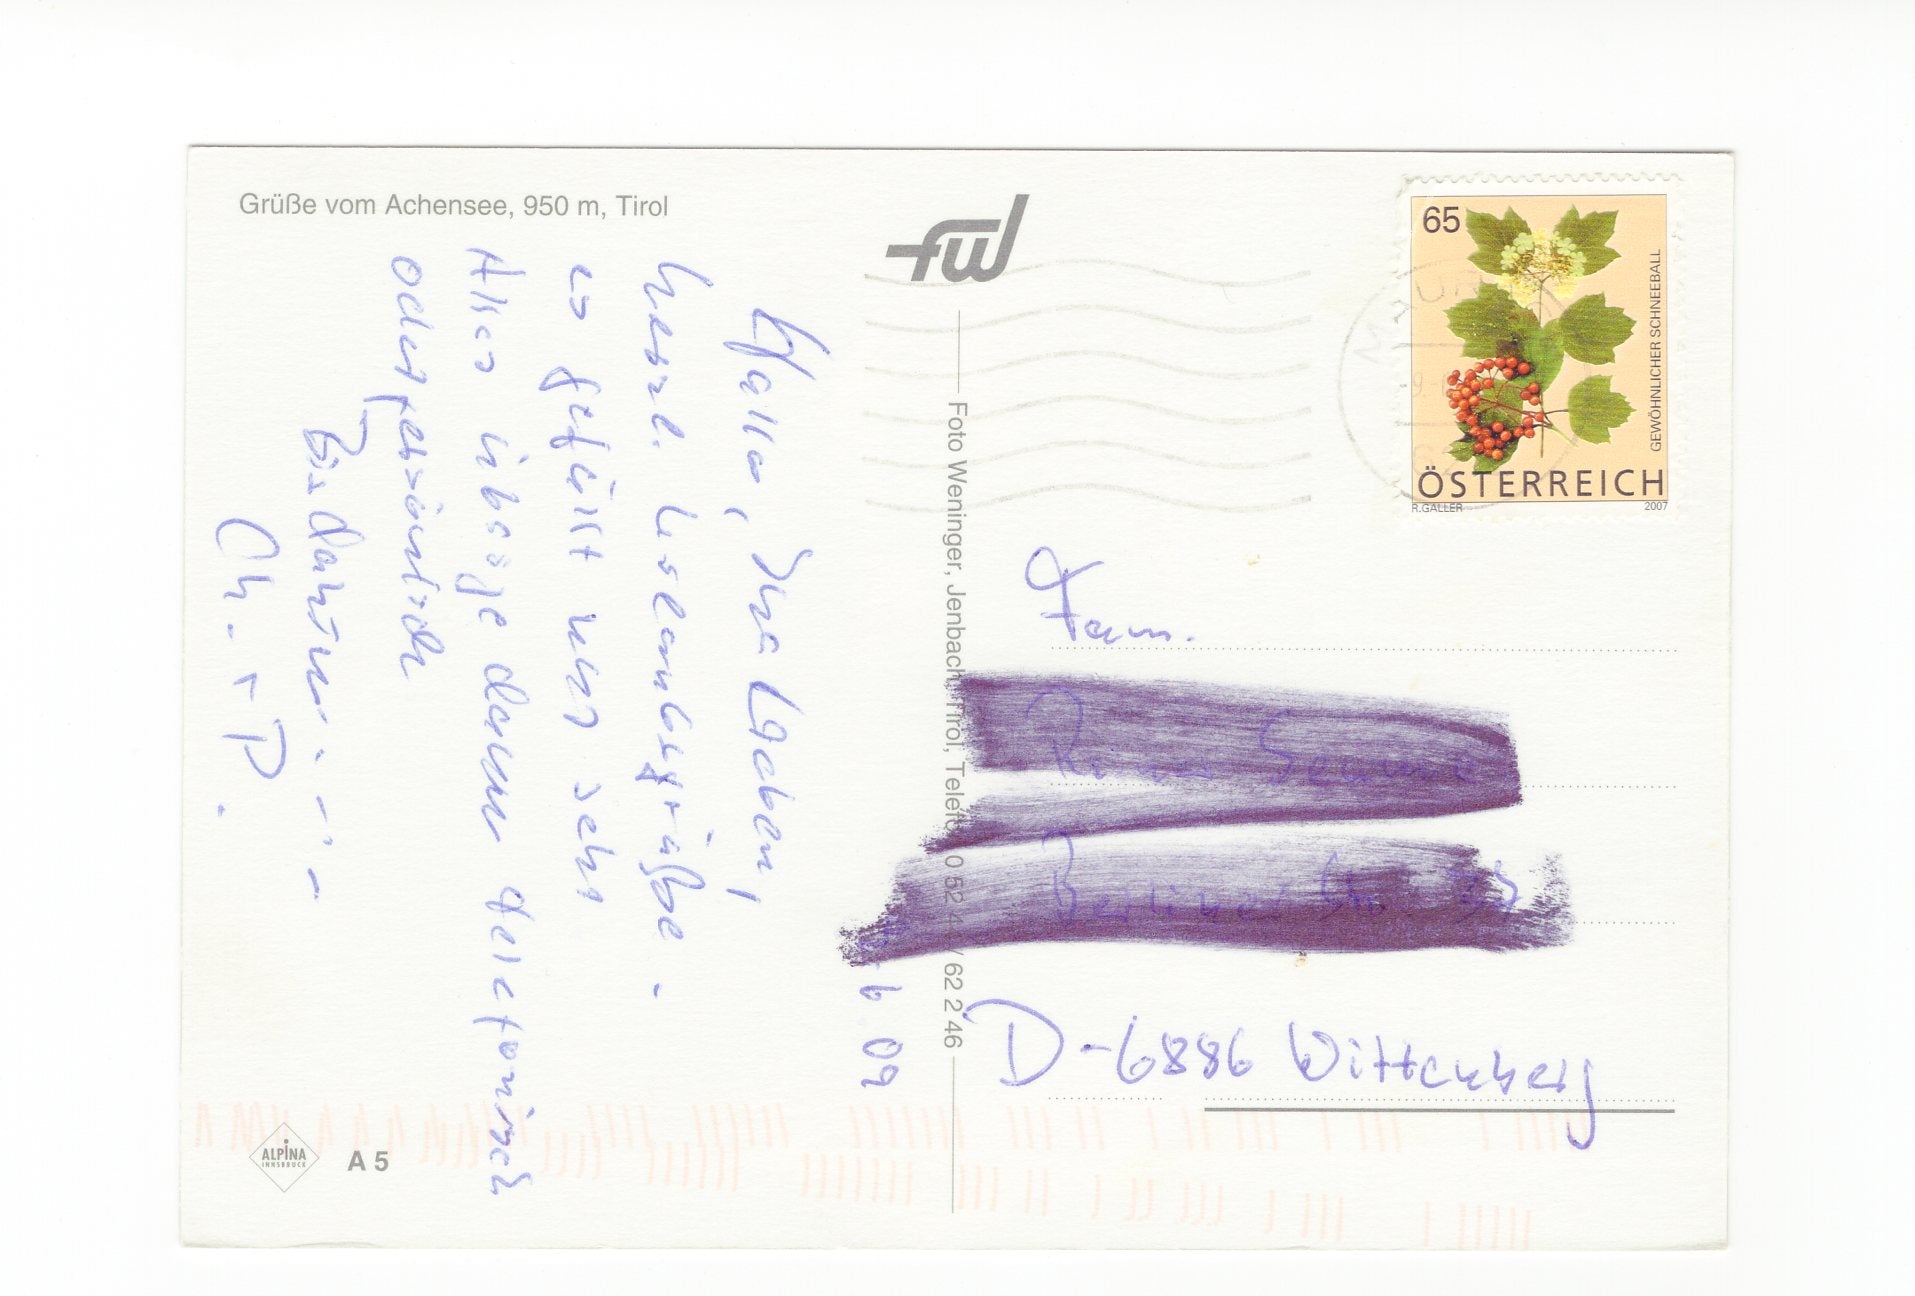 Grüße vom Achensee, 950 m, Tirol
fw
65
GEWÖHNLICHER SCHNEEBALL
ÖSTERREICH
R.GALLER 2007
Hallo, Ihr Lieben,
herzl. Urlaubsgrüße -
es gefällt uns sehr
Alles übrige dann telefonisch
oder persönlich
Bis dahin
Ch. + P.
6 09
Foto Weninger, Jenbach, Tirol, Telefon 0 52 4 / 62 2 46
Fam.
D-6886 Wittenberg
ALPINA
INNSBRUCK
A 5